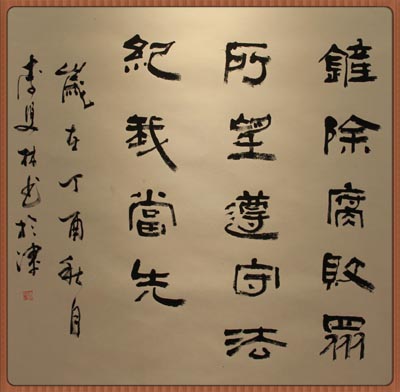 鏟除腐敗眾
所望遵守法
紀我當先
歲在丁酉秋月
李林书於